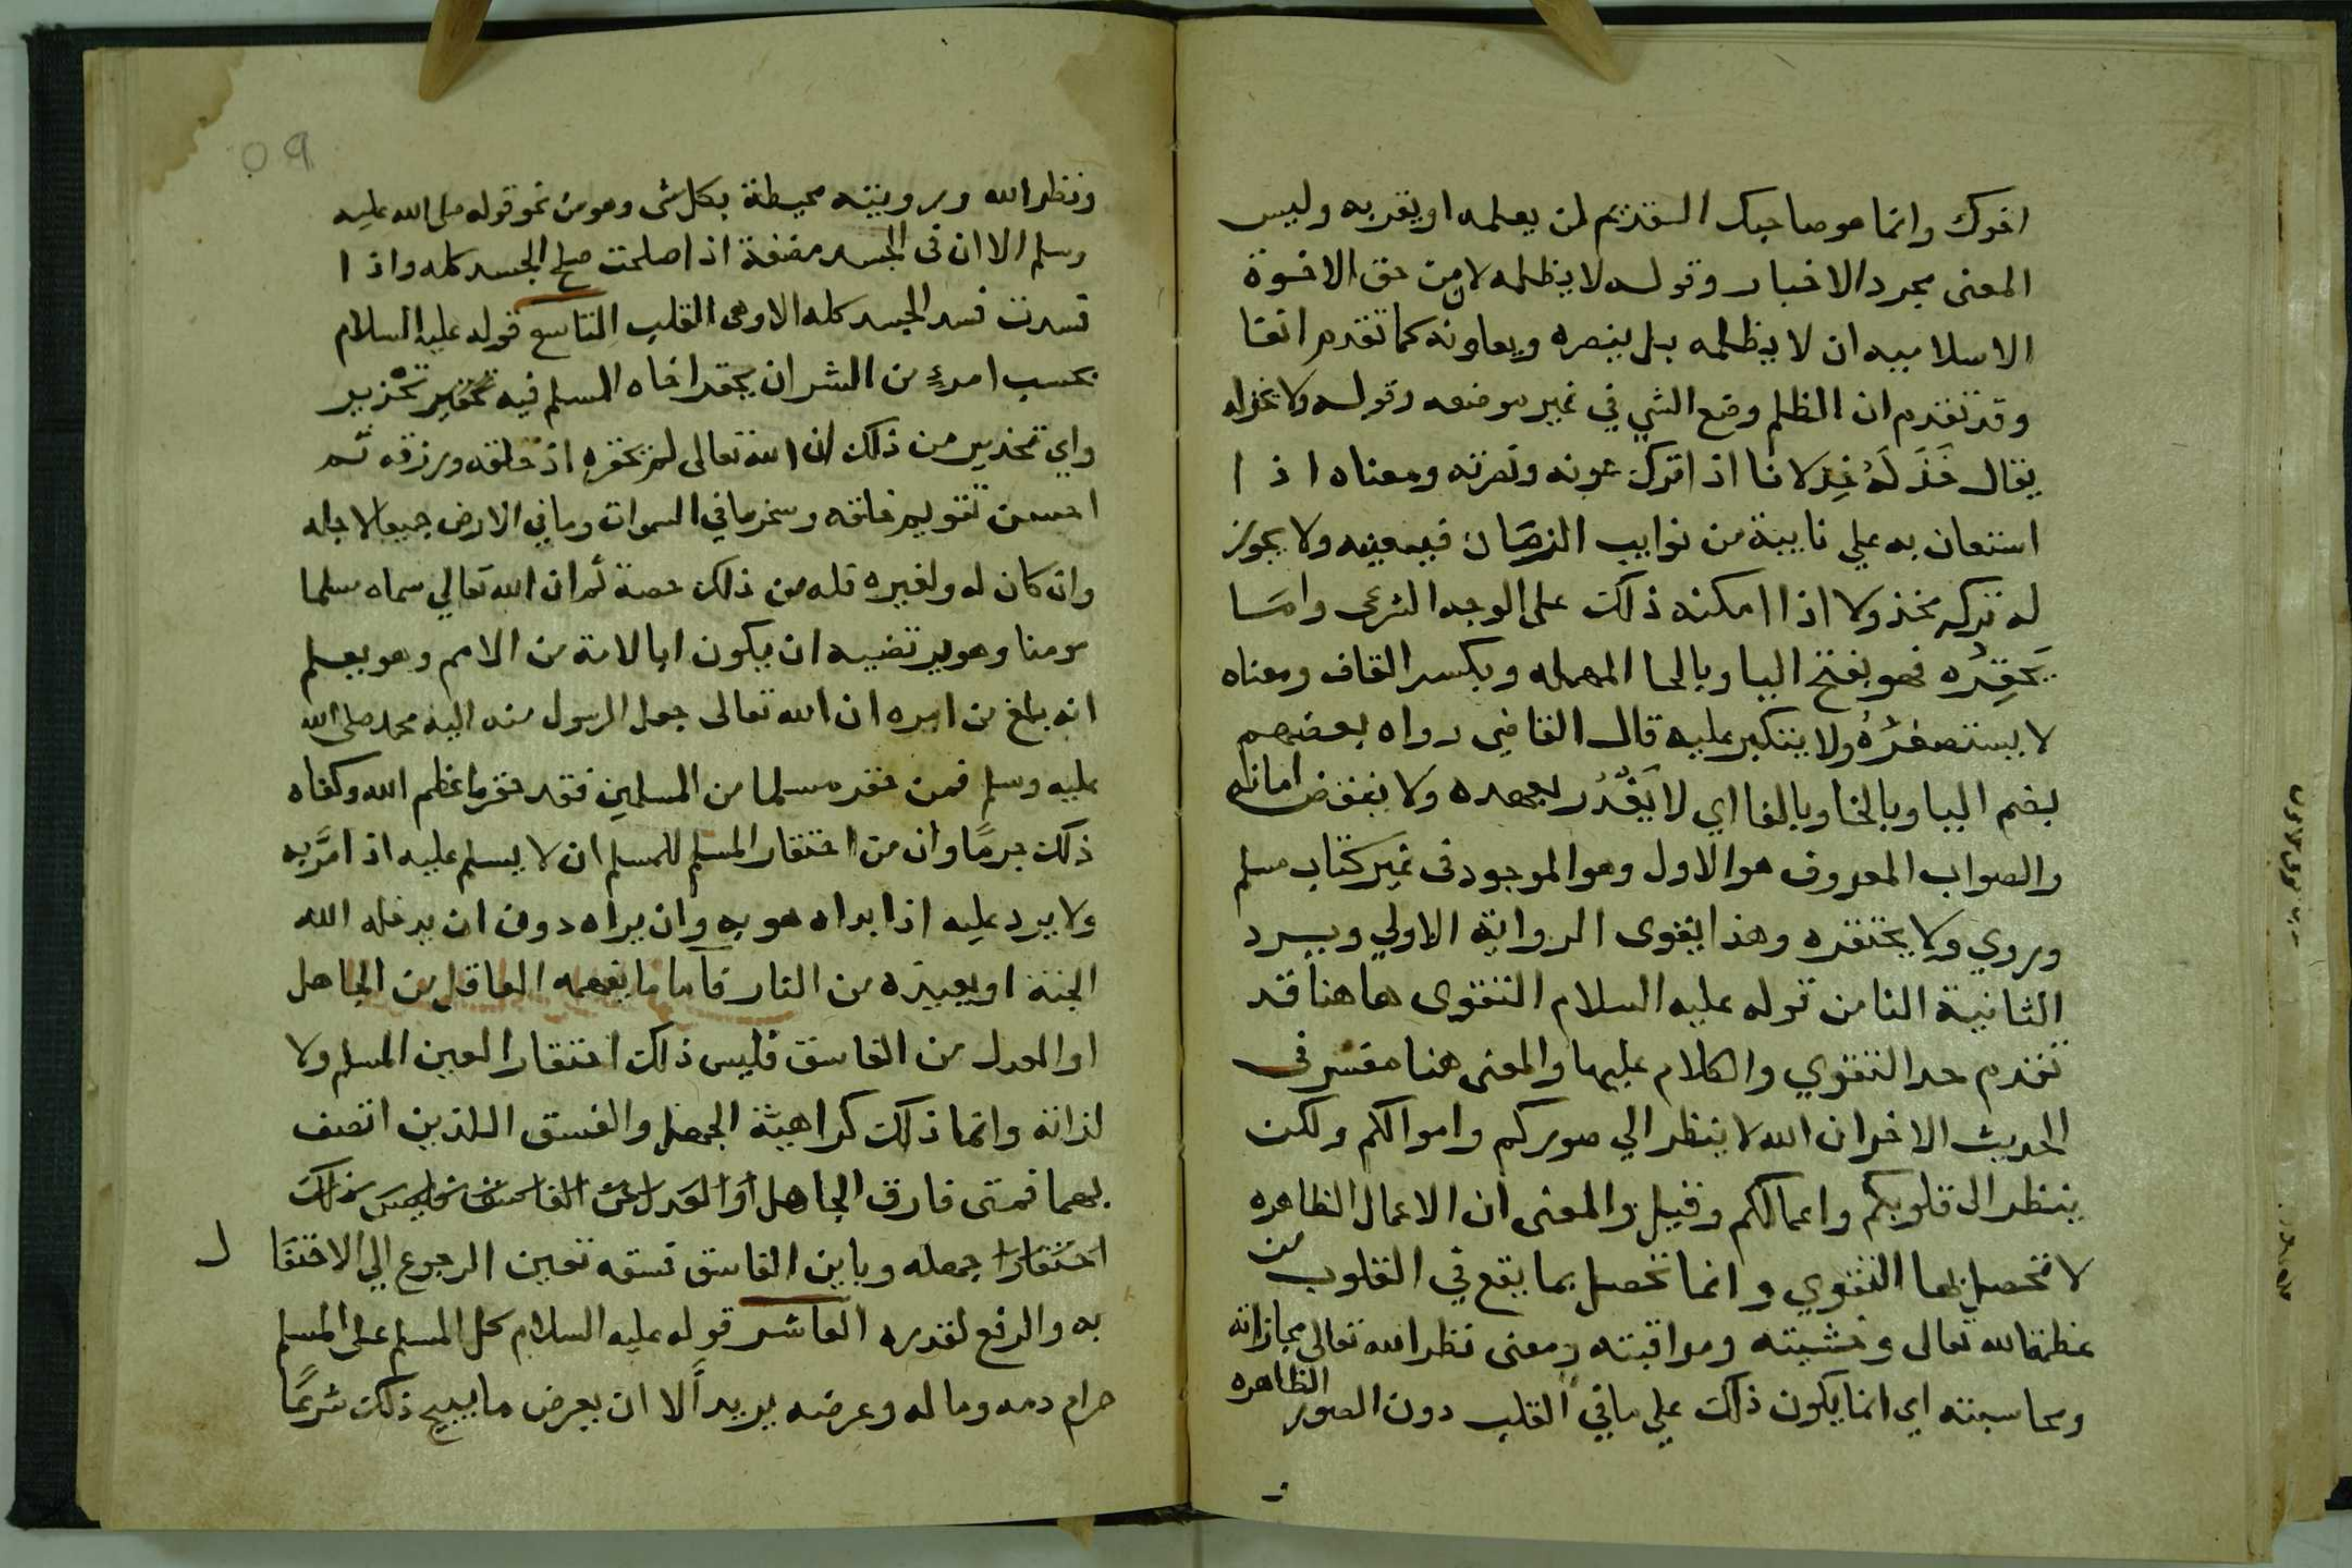 اخوك وانما هو صاحبك السقديم لمن يعلمه او يقربه وليس
المعنى مجرد الاخبار وقوله لا يظلمه لان من حق الاخوة
الاسلامييه ان لا يظلمه بل ينصره ويعاونه كما تقدم انفا
وقد تقدم ان الظلم وضع الشي في غير موضعه وقوله ولا يخذله
يقال خَذَلَهُ خِذلانا اذا ترك عونه ونصرته ومعناه اذا
استعان به علي نايبة من نوايب الزمان فيعينه ولا يجوز
له تركه مخذولا اذا امكنه ذلك على الوجه الشرعى واما
يَحقِرُه فهو بفتح اليا وبالحا المهمله وبكسر القاف ومعناه
لا يستصغرُهُ ولا يتكبر عليه قال القاضي رواه بعضهم
بضم اليا وبالخا وبالفا اي لا يَغْدُر بعهده ولا ينقض امانه
والصواب المعروف هو الاول وهو الموجود فى غير كتاب مسلم
وروي ولا يحتقره وهذا يقوى الرواية الاولي ويرد
الثانية الثامن قوله عليه السلام التقوى هاهنا قد
تقدم حد التقوي والكلام عليها والمعنى هنا مفسر فى
الحديث الاخر ان الله لا ينظر الي صوركم واموالكم ولكن
ينظر الى قلوبكم واعمالكم وقيل والمعنى ان الاعمال الظاهره
لا تحصل بها التقوي وانما تحصل بما يقع في القلوب من
عظمة الله تعالى وخشيته ومراقبته ومعنى نظر الله تعالى مجازاته
ومحاسبته اي انما يكون ذلك علي ما في القلب دون الصور الظاهره
٥٩
ونظر الله ورويته محيطة بكل شى وهو من نحو قوله صلى الله عليه
وسلم الا ان فى الجسد مضغة اذا صلحت صلح الجسد كله واذا
فسدت فسد الجسد كله الا وهى القلب التاسع قوله عليه السلام
بحسب امرءٍ من الشر ان يحقر اخاه المسلم فيه تحقير تحذير
واي تحذير من ذلك لان الله تعالى لم يحقره اذ خلقه ورزقه ثم
احسن تقويم خلقه وسخر ما في السموات وما في الارض جميعا لاجله
وان كان له ولغيره فله من ذلك حصة ثم ان الله تعالي سماه مسلما
مومنا وهو يرتضيه ان يكون ابا لامة من الامم وهو يعلم
انه بلغ من امره ان الله تعالى جعل الرسول منه اليه محمد صلى الله
عليه وسلم فمن حقر مسلما من المسلمين فقد حقر ما عظم الله وكفاه
ذلك جرمًا وان من احتقار المسلم للمسلم ان لا يسلم عليه اذا مرَّ به
ولا يرد عليه اذا براه هو به وان يراه دون ان يدخله الله
الجنة او يعيذه من النار فاما ما يفهمه العاقل من الجاهل
او العدل من الفاسق فليس ذلك احتقارا لعين المسلم ولا
لذاته وانما ذلك كراهية الجهل والفسق اللذين اتصف
بهما فمتى فارق الجاهل او العدل من الفاسق فليس ذلك
احتقارا جهله وباين الفاسق فسقه تعين الرجوع الي الاحتفا ل
به والرفع لقدره العاشر قوله عليه السلام كل المسلم على المسلم
حرام دمه وماله وعرضه يريد ألا ان يعرض ما يبيح ذلك شرعًا